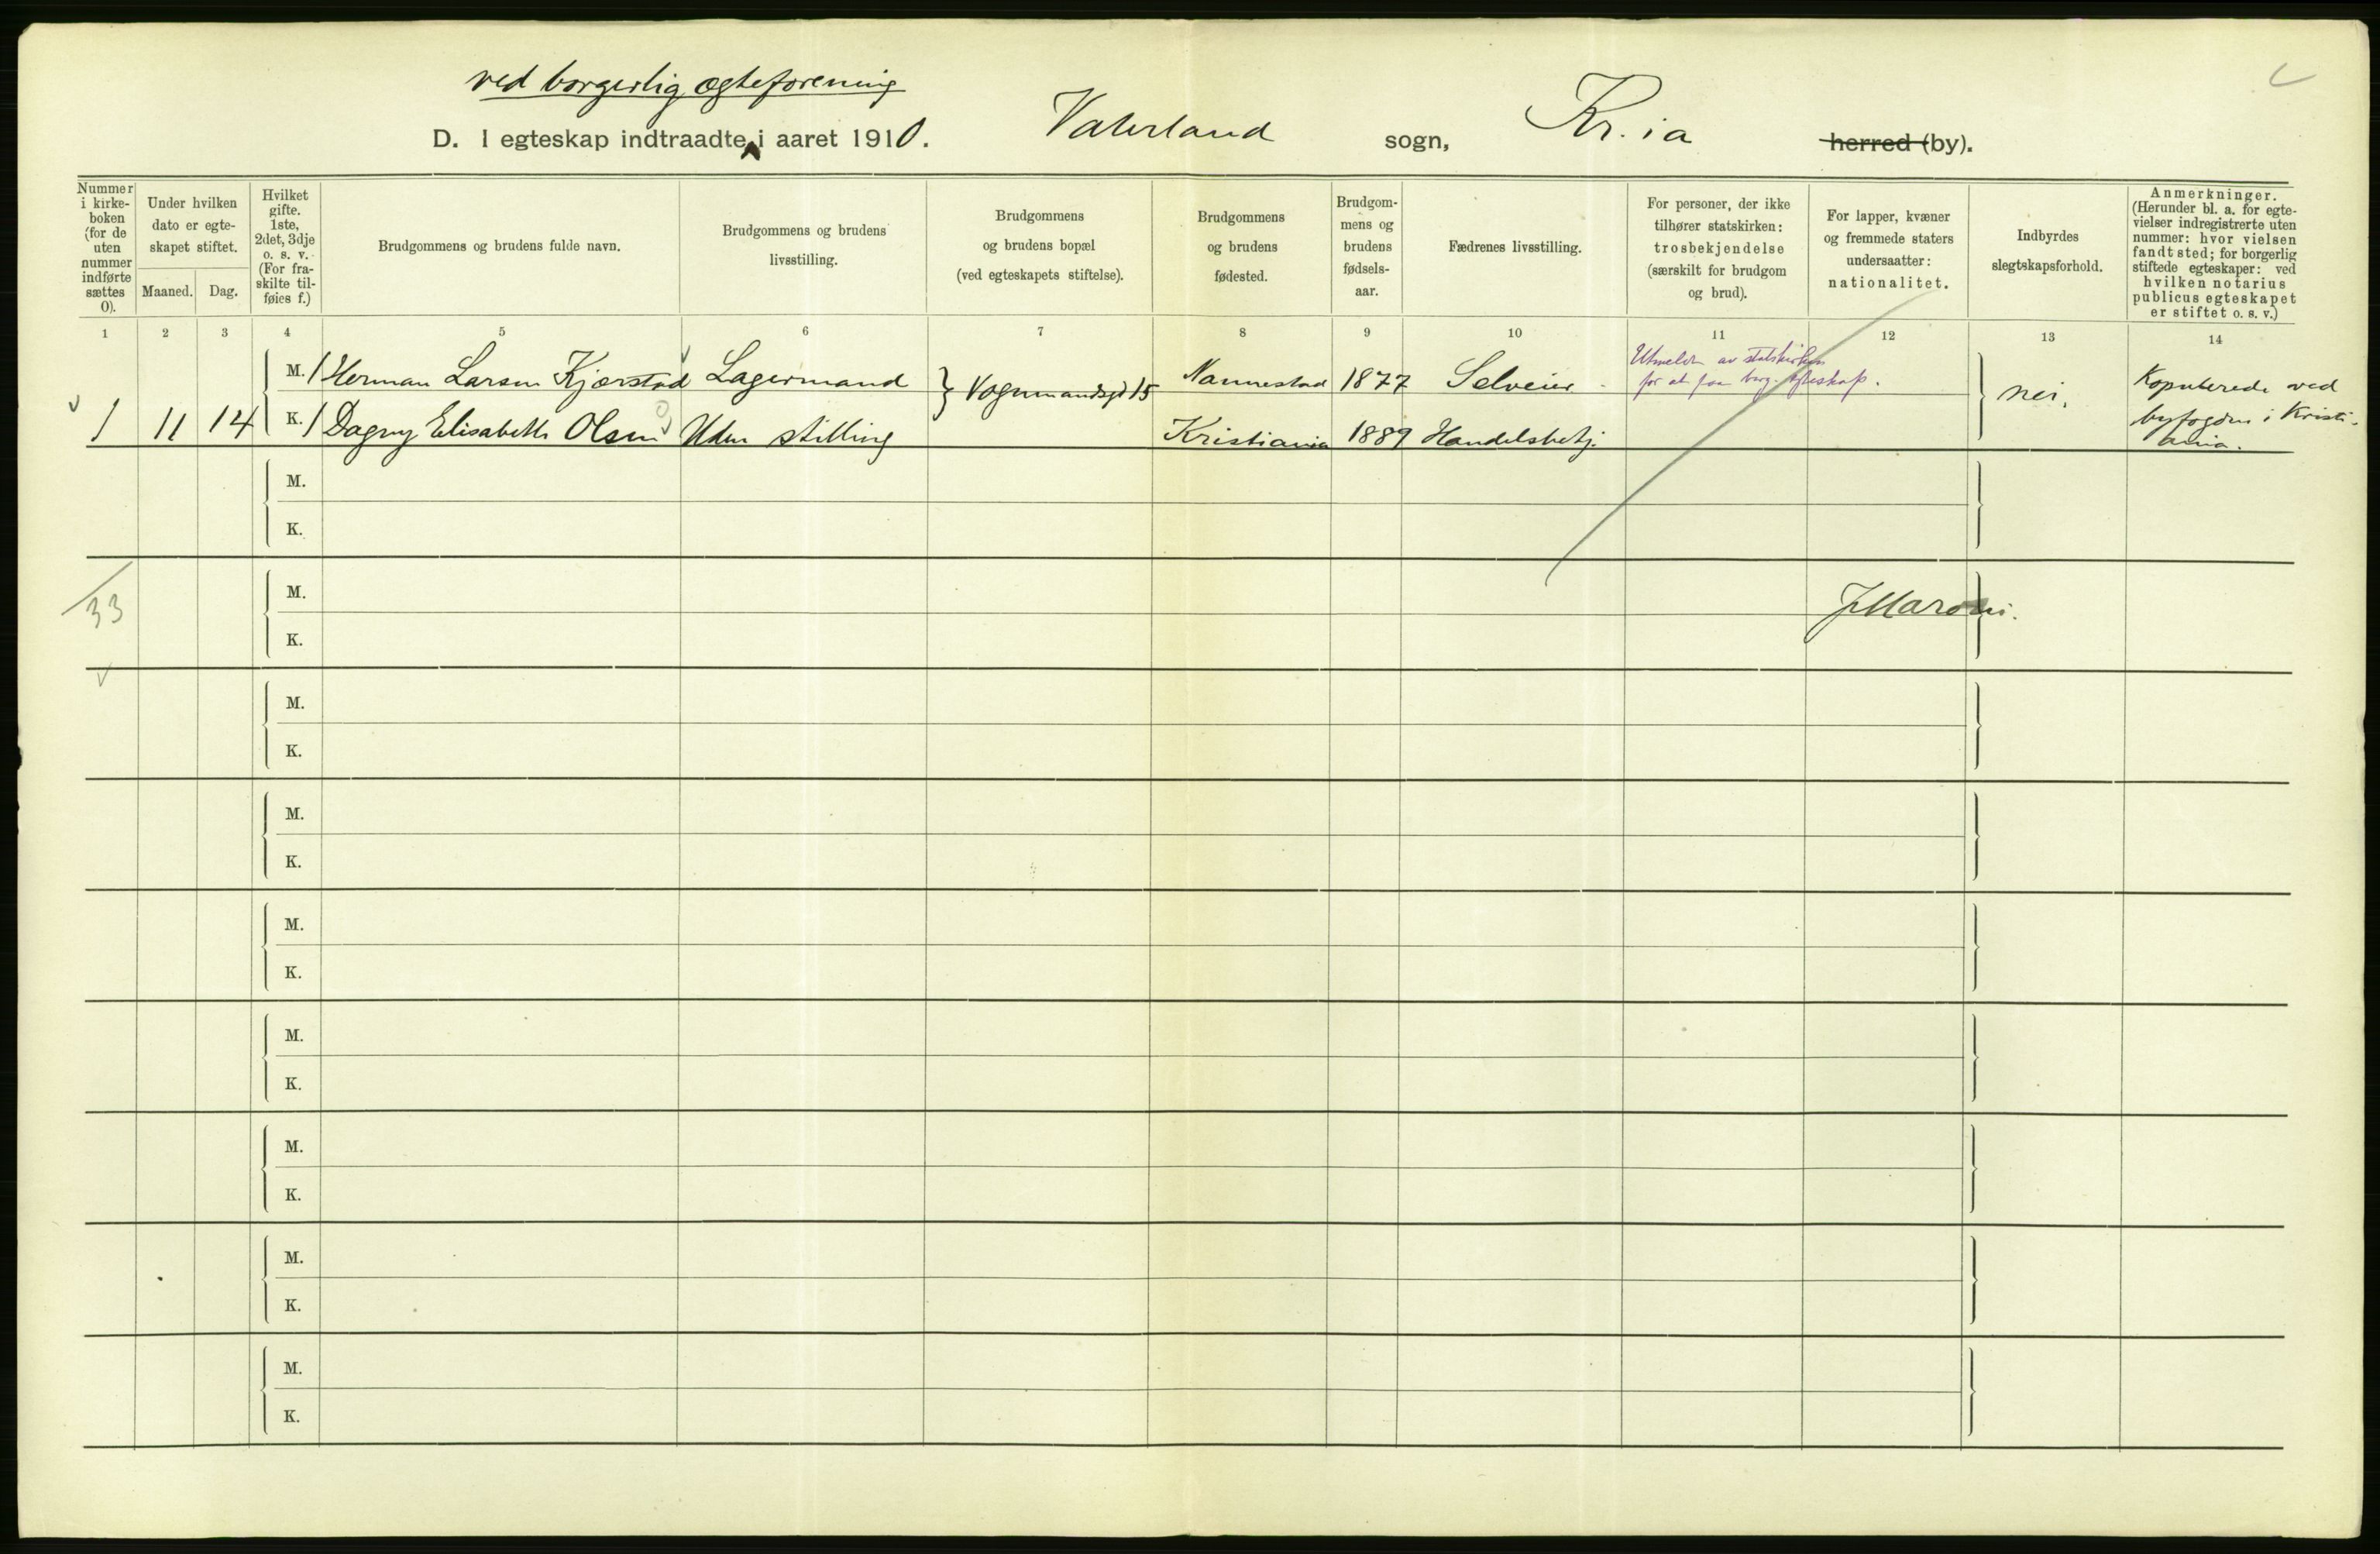 ved borgerlig ægteforening
D. I egteskap indtraadte i aaret 1910. Vaterland sogn, Kr.ia herred (by).
Nummer i kirke-boken (for de uten nummer indførte sættes 0).
Under hvilken dato er egte-skapet stiftet.
Maaned. Dag.
Hvilket gifte. 1ste, 2det, 3dje o. s. v. (For fra-skilte til-føies f.)
Brudgommens og brudens fulde navn.
Brudgommens og brudens livsstilling.
Brudgommens og brudens bopæl (ved egteskapets stiftelse).
Brudgommens og brudens fødested.
Brudgom-mens og brudens fødsels-aar.
Fædrenes livsstilling.
For personer, der ikke tilhører statskirken: trosbekjendelse (særskilt for brudgom og brud).
For lapper, kvæner og fremmede staters undersaatter: nationalitet.
Indbyrdes slegtskapsforhold.
Anmerkninger. (Herunder bl. a. for egte-vielser indregistrerte uten nummer: hvor vielsen fandt sted; for borgerlig stiftede egteskaper: ved hvilken notarius publicus egteskapet er stiftet o. s. v.)
1 2 3 4 5 6 7 8 9 10 11 12 13 14
M. 1 Herman Larsen Kjærstad Lagermand } Vognmandsgd 15 Nannestad 1877 Selveier Utmeldt av statskirken for at faa borg. egteskap. nei.
1 11 14 K. 1 Dagny Elisabeth Olsen Uden stilling Kristiania 1889 Handelsbetj.
Kopulerede ved
byfogden i Kristi-
ania.
M.
K.
33
M. JMaroni.
K.
M.
K.
M.
K.
M.
K.
M.
K.
M.
K.
M.
K.
M.
K.